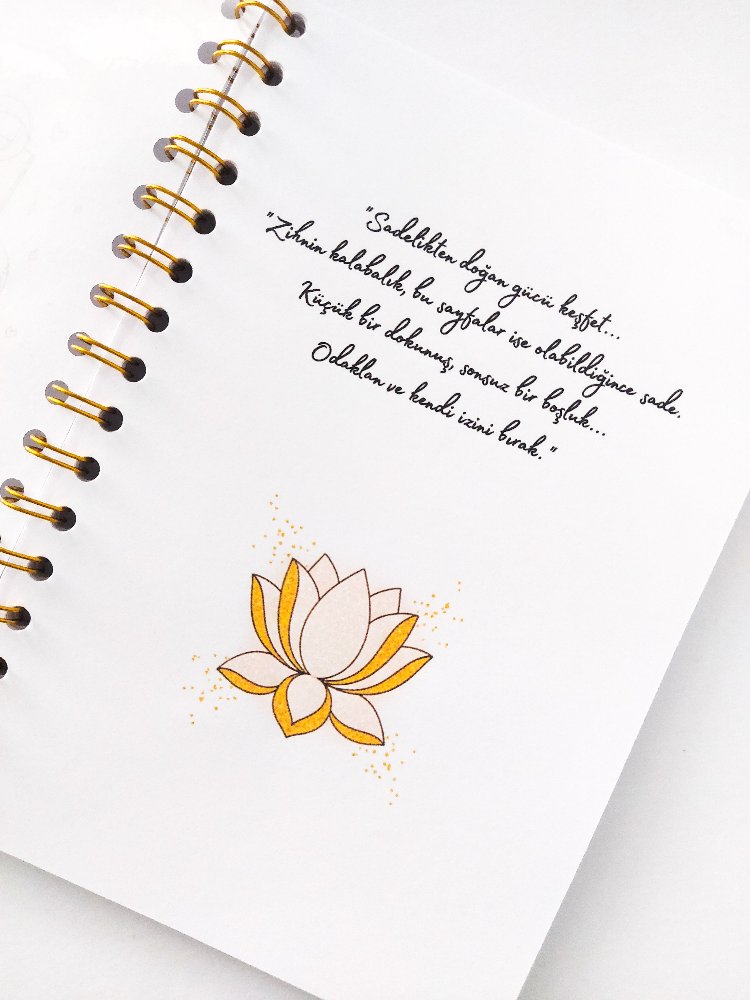 "Sadelikten doğan gücü keşfet...
"Zihnin kalabalık, bu sayfalar ise olabildiğince sade.
Küçük bir dokunuş, sonsuz bir boşluk...
Odaklan ve kendi izini bırak."